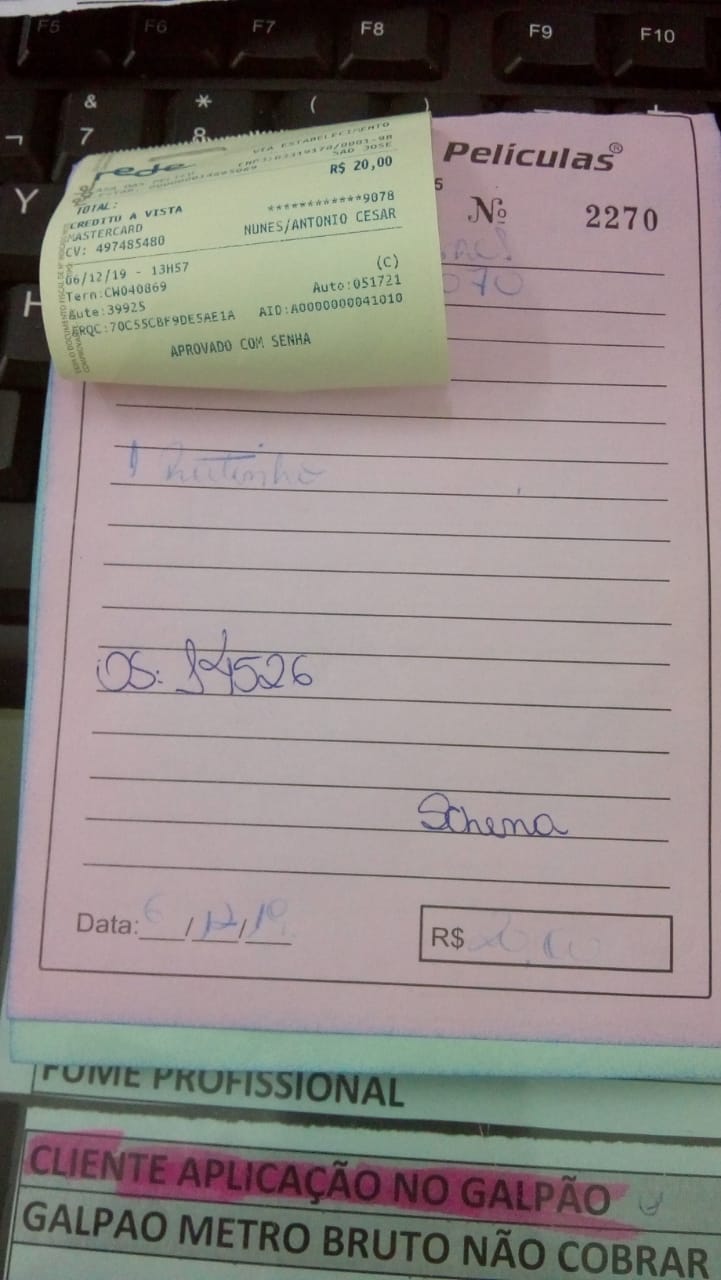 F5 F6 F7 F8 F9 F10
& * ( )
7 8
Y
H
rede
VIA ESTABELECIMENTO
SAO JOSE
R$ 20,00
TOTAL:
CREDITO A VISTA
MASTERCARD ************9078
CV: 497485480 NUNES/ANTONIO CESAR
06/12/19 - 13H57 (C)
Term:CW040869 Auto:051721
Aute:39925
ERQC:70C55CBF9DE5AE1A AID:A0000000041010
APROVADO COM SENHA
Películas®
5
Nº 2270
070
1
OS: 14526
Schena
Data: 6/12/19
R$ 20,00
FUME PROFISSIONAL
CLIENTE APLICAÇÃO NO GALPÃO
GALPAO METRO BRUTO NÃO COBRAR